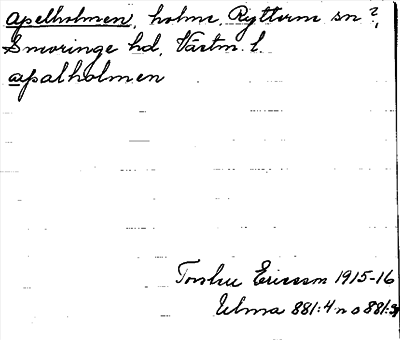 Apelholmen, holme, Rytterne sn ?
Snevringe hd, Västm. l.
apalholmen
Torsten Ericsson 1915-16
Ulma 881:4 n o 881:3